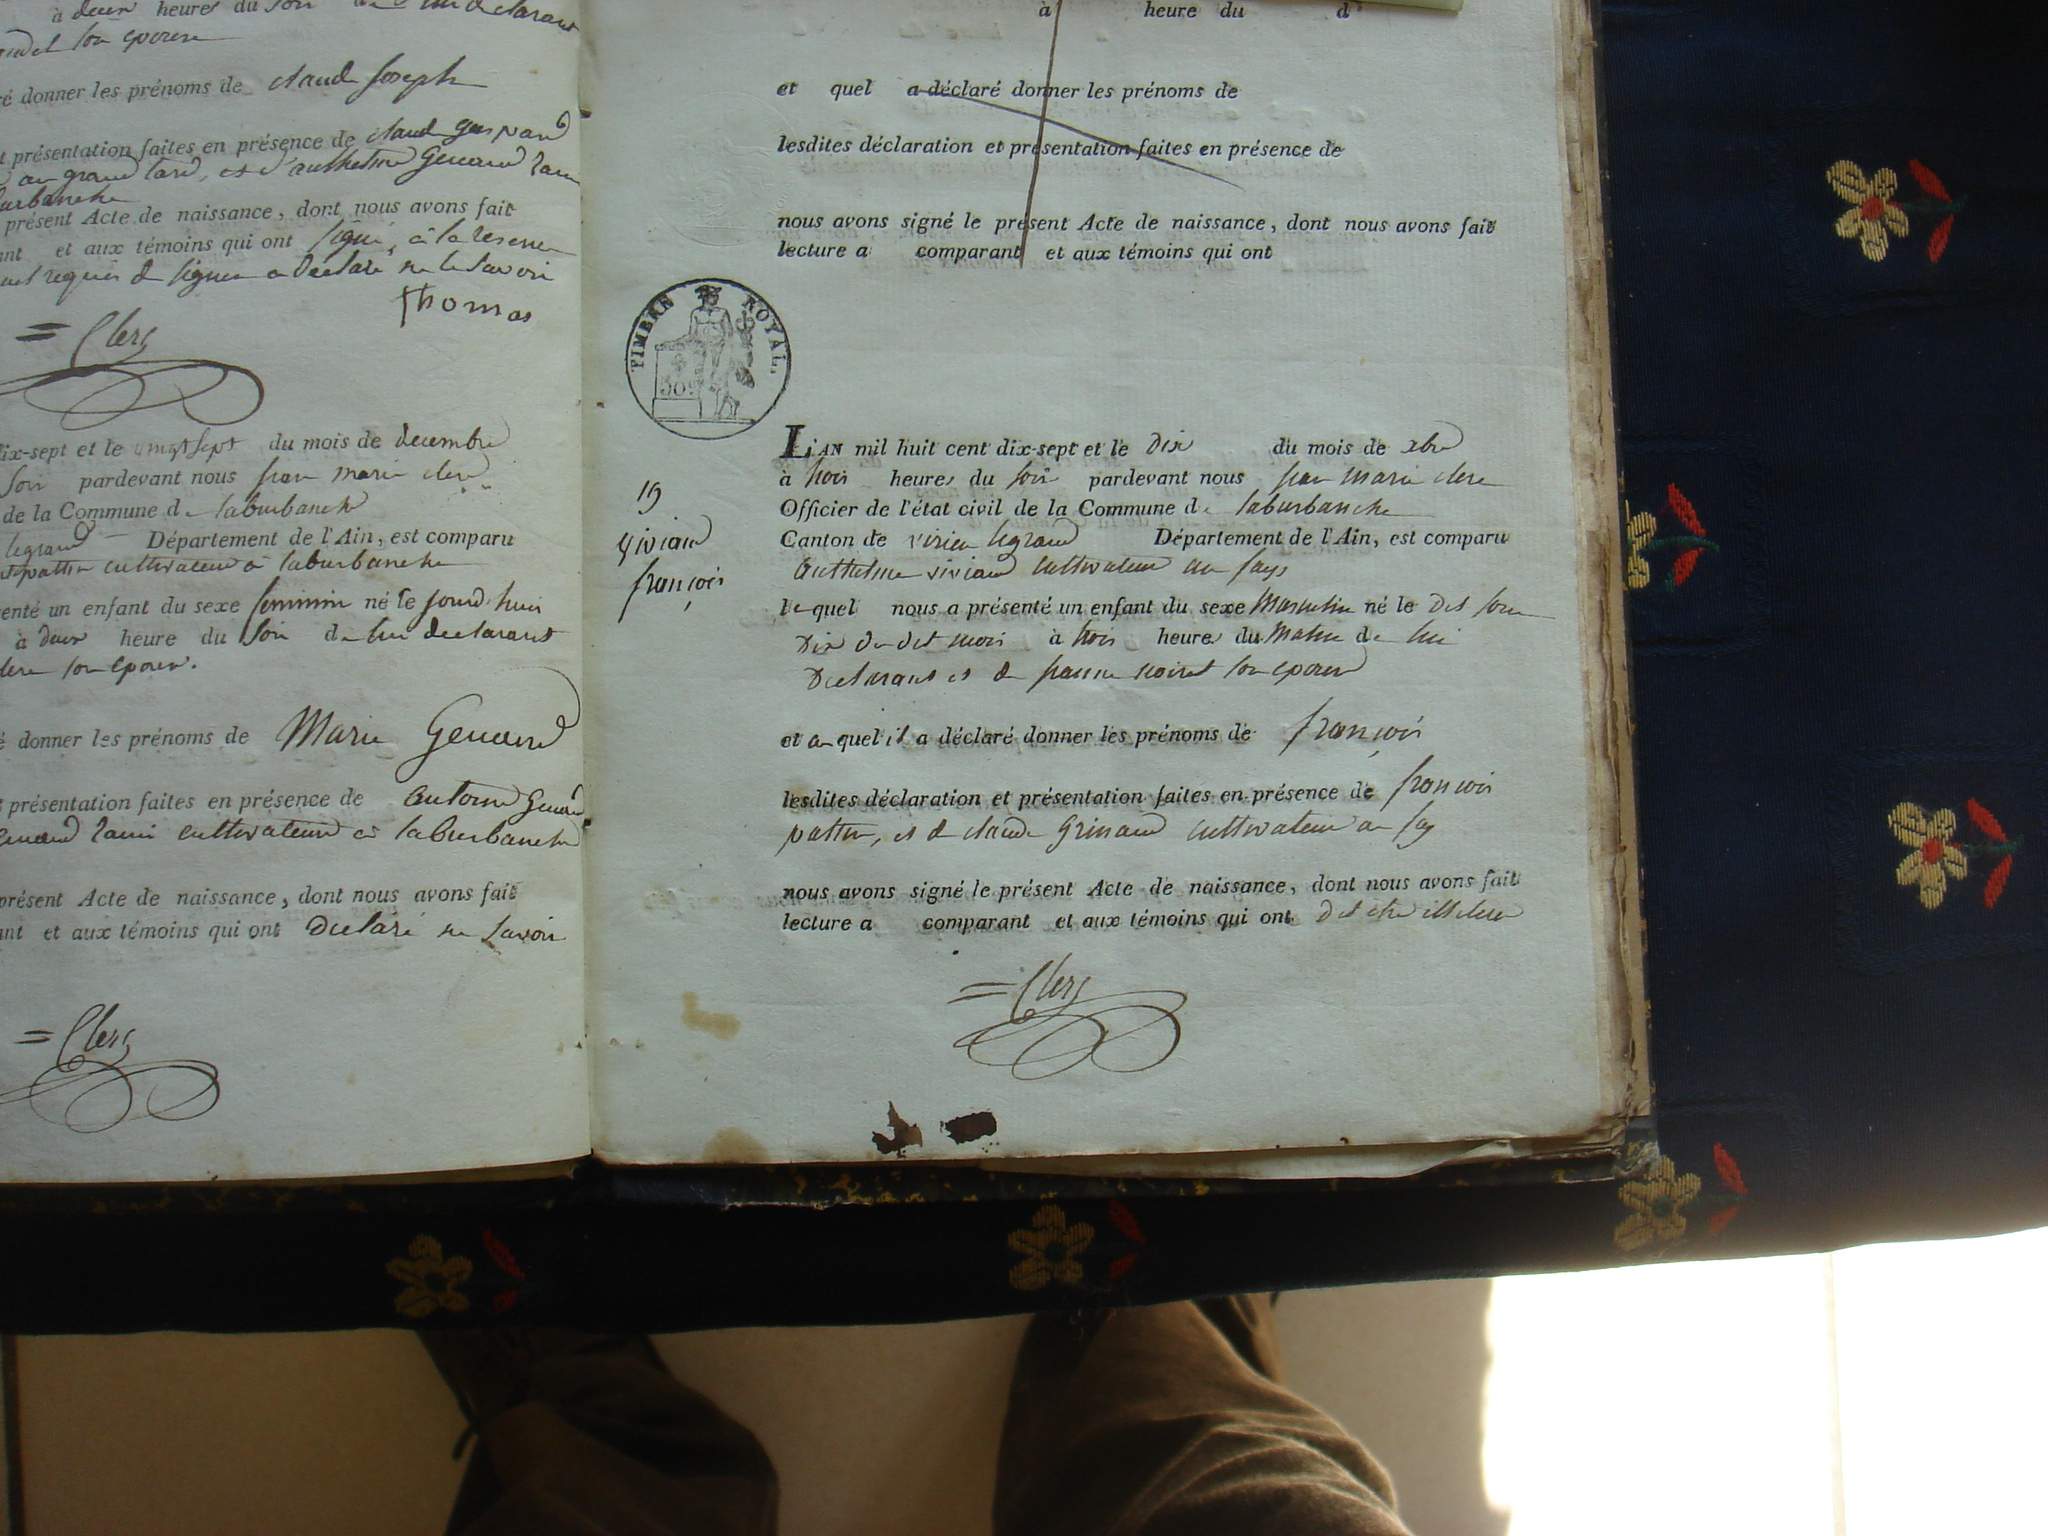 à deux heures du soir
son epouse
é donner les prénoms de claude joseph
t présentation faites en présence de claude gaspard
au grand tard, et d'anthelme Genand
burbanche
présent Acte de naissance, dont nous avons fait
ant et aux témoins qui ont signé, à la reserve
requis de signer a declaré ne le savoir
thomas
= Clerc
dix-sept et le vingt sept du mois de decembre
soir pardevant nous jean marie clerc
de la Commune de laburbanche
legrand Département de l'Ain, est comparu
pattin cultivateur à laburbanche
enté un enfant du sexe feminin né le jourd'huis
à deux heure du soir de lui declarant
clerc son epouse.
é donner les prénoms de Marie Genand
présentation faites en présence de antoine Genand
Genand cultivateur à laburbanche
présent Acte de naissance, dont nous avons fait
ant et aux témoins qui ont declaré ne savoir
= Clerc
à heure du d
et quel a déclaré donner les prénoms de
lesdites déclaration et présentation faites en présence de
nous avons signé le présent Acte de naissance, dont nous avons fait
lecture a comparant et aux témoins qui ont
TIMBRE ROYAL.
50c
19
Viviand
françois
L'AN mil huit cent dix-sept et le dix du mois de xbre
à trois heures du soir pardevant nous jean marie clerc
Officier de l'état civil de la Commune de laburbanche
Canton de virieu legrand Département de l'Ain, est comparu
anthelme viviand cultivateur au fays
lequel nous a présenté un enfant du sexe masculin né le dit jour
dix du dit mois à trois heures du matin de lui
declarant et de jeanne noiret son epouse
et au quel il a déclaré donner les prénoms de françois
lesdites déclaration et présentation faites en présence de françois
pattin, et de claude Grinand cultivateur au fay
nous avons signé le présent Acte de naissance, dont nous avons fait
lecture a comparant et aux témoins qui ont dit etre illiteré
= Clerc